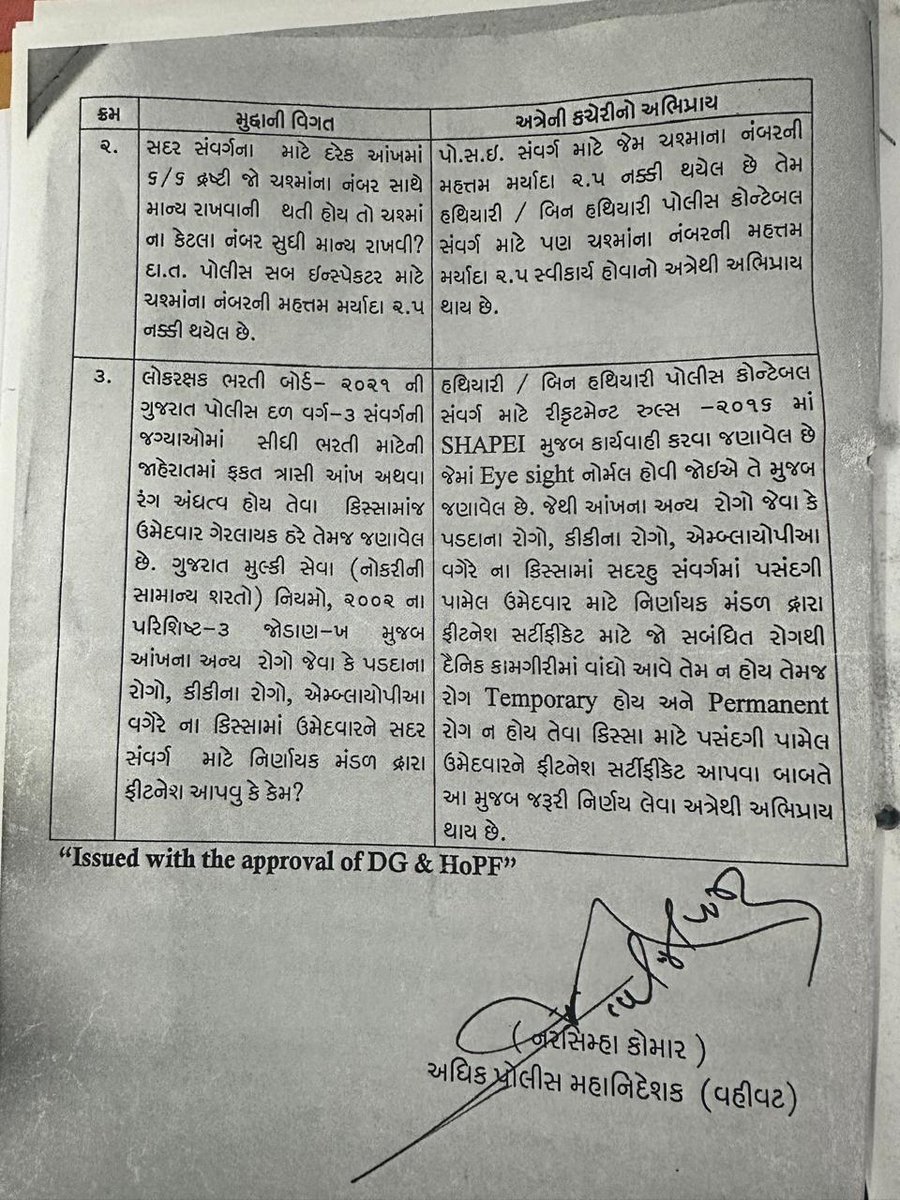 ક્રમ
મુદ્દાની વિગત
અત્રેની કચેરીનો અભિપ્રાય
૨.
સદર સંવર્ગના માટે દરેક આંખમાં
૬/૬ દ્રષ્ટી જો ચશ્માંના નંબર સાથે
માન્ય રાખવાની થતી હોય તો ચશ્માં
ના કેટલા નંબર સુધી માન્ય રાખવી?
દા.ત. પોલીસ સબ ઈન્સ્પેકટર માટે
ચશ્માંના નંબરની મહત્તમ મર્યાદા ૨.૫
નક્કી થયેલ છે.
પો.સ.ઈ. સંવર્ગ માટે જેમ ચશ્માના નંબરની
મહત્તમ મર્યાદા ૨.૫ નક્કી થયેલ છે તેમ
હથિયારી / બિન હથિયારી પોલીસ કોન્ટેબલ
સંવર્ગ માટે પણ ચશ્માંના નંબરની મહત્તમ
મર્યાદા ૨.૫ સ્વીકાર્ય હોવાનો અત્રેથી અભિપ્રાય
થાય છે.
૩.
લોકરક્ષક ભરતી બોર્ડ- ૨૦૨૧ ની
ગુજરાત પોલીસ દળ વર્ગ-૩ સંવર્ગની
જગ્યાઓમાં સીધી ભરતી માટેની
જાહેરાતમાં ફકત ત્રાસી આંખ અથવા
રંગ અંધત્વ હોય તેવા કિસ્સામાંજ
ઉમેદવાર ગેરલાયક ઠરે તેમજ જણાવેલ
છે. ગુજરાત મુલ્કી સેવા (નોકરીની
સામાન્ય શરતો) નિયમો, ૨૦૦૨ ના
પરિશિષ્ટ-૩ જોડાણ-ખ મુજબ
આંખના અન્ય રોગો જેવા કે પડદાના
રોગો, કીકીના રોગો, એમ્બ્લાયોપીઆ
વગેરે ના કિસ્સામાં ઉમેદવારને સદર
સંવર્ગ માટે નિર્ણાયક મંડળ દ્વારા
ફીટનેશ આપવુ કે કેમ?
હથિયારી / બિન હથિયારી પોલીસ કોન્ટેબલ
સંવર્ગ માટે રીકૃટમેન્ટ રુલ્સ -૨૦૧૬ માં
SHAPEI મુજબ કાર્યવાહી કરવા જણાવેલ છે
જેમાં Eye sight નોર્મલ હોવી જોઈએ તે મુજબ
જણાવેલ છે. જેથી આંખના અન્ય રોગો જેવા કે
પડદાના રોગો, કીકીના રોગો, એમ્બ્લાયોપીઆ
વગેરે ના કિસ્સામાં સદરહુ સંવર્ગમાં પસંદગી
પામેલ ઉમેદવાર માટે નિર્ણાયક મંડળ દ્વારા
ફીટનેશ સર્ટીફીકેટ માટે જો સબંધિત રોગથી
દૈનિક કામગીરીમાં વાંધો આવે તેમ ન હોય તેમજ
રોગ Temporary હોય અને Permanent
રોગ ન હોય તેવા કિસ્સા માટે પસંદગી પામેલ
ઉમેદવારને ફીટનેશ સર્ટીફીકેટ આપવા બાબતે
આ મુજબ જરૂરી નિર્ણય લેવા અત્રેથી અભિપ્રાય
થાય છે.
“Issued with the approval of DG & HoPF”
(નરસિમ્હા કોમાર)
અધિક પોલીસ મહાનિદેશક (વહીવટ)